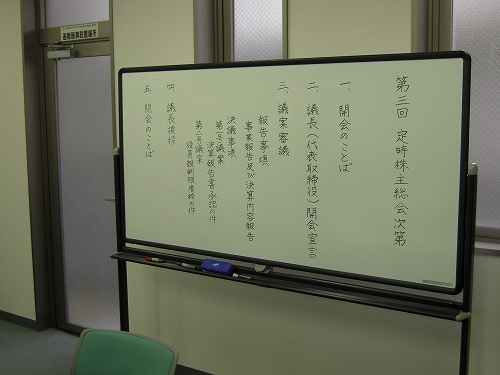 避難器具設置場所
第三回 定時株主総会次第
一、開会のことば
二、議長(代表取締役)開会宣言
三、議案審議
報告事項
事業報告及び決算内容報告
決議事項
第一号議案
決算報告書承認の件
第二号議案
役員報酬限度枠の件
四、議長挨拶
五、閉会のことば